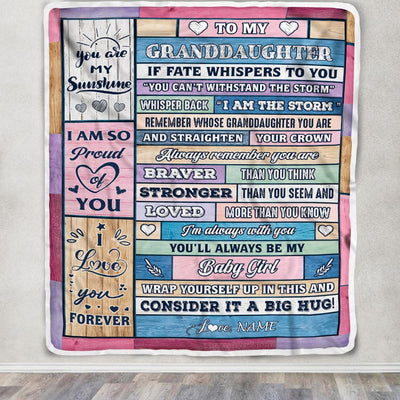 TO MY
GRANDDAUGHTER
IF FATE WHISPERS TO YOU
"YOU CAN'T WITHSTAND THE STORM"
WHISPER BACK "I AM THE STORM"
REMEMBER WHOSE GRANDDAUGHTER YOU ARE
AND STRAIGHTEN YOUR CROWN
Always remember you are
BRAVER THAN YOU THINK
STRONGER THAN YOU SEEM AND
LOVED MORE THAN YOU KNOW
I'm always with you
YOU'LL ALWAYS BE MY
Baby Girl
WRAP YOURSELF UP IN THIS AND
CONSIDER IT A BIG HUG!
Love, NAME
You are
MY
Sunshine
I AM SO
Proud
of
YOU
I
Love
you
FOREVER